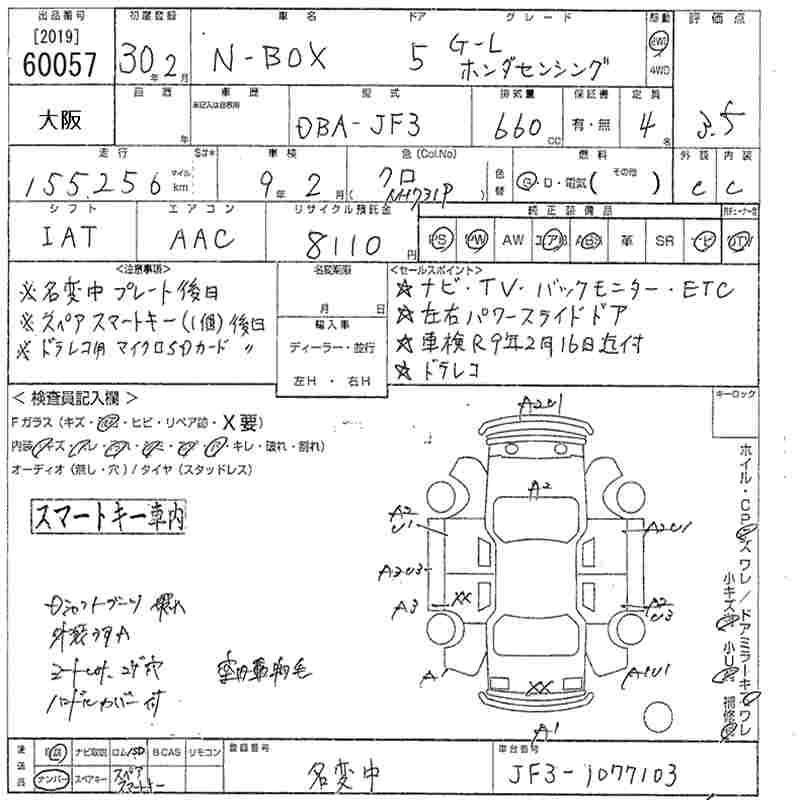 出品番号 初度登録 車名 ドア グレード 駆動 評価点
[2019]
60057 30年2月 N-BOX 5 G-L ホンダセンシング 2WD 4WD
車歴 型式 排気量 保証書 定員
未記入は自家用
大阪 年 DBA-JF3 660cc 有・無 4名 3.5
走行 車検 色(Col.No) 色替 燃料 外装 内装
155,256 マイル km 9年2月 クロ (NH731P) G・D・電気( その他 ) C C
シフト エアコン リサイクル預託金 純正装備品
IAT AAC 8110円 PS PW AW エアB ABS 革 SR ナビ TV
<注意事項> 名変期限 <セールスポイント>
※名変中 プレート後日
※スペアスマートキー(1個)後日
※ドラレコ用 マイクロSDカード 〃
月 日
輸入車
ディーラー・並行
左H・右H
☆ナビ・TV・バックモニター・ETC
☆左右パワースライドドア
☆車検R9年2月16日迄付
☆ドラレコ
<検査員記入欄> キーロック
Fガラス(キズ・・ヒビ・リペア跡・X要)
内装(キズ・・キレ・破れ・割れ)
オーディオ(無し・穴)/タイヤ(スタッドレス)
スマートキー車内
A2U1
A2
A2 U1
A2U1
A2U3
A3
XX
A2 U3
A1
A1U1
XX
A1
ハンドルカバー付
後送品 取説 ナビ取説 ロム/SD B-CAS リモコン 登録番号 車台番号
ナンバー スペアキー スペアスマートキー 名変中 JF3-1077103